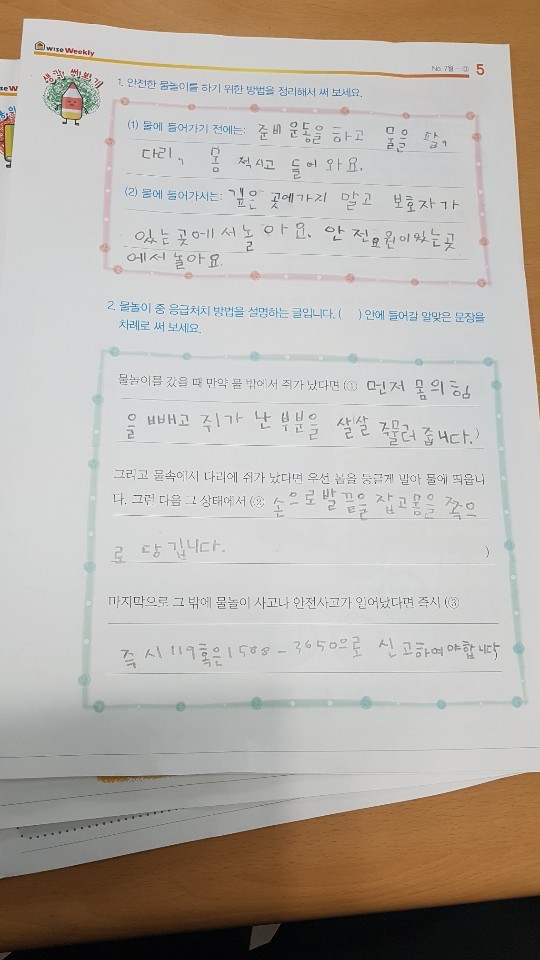 wise Weekly
No. 7월-③ 5
생각 펼쳐보기
1. 안전한 물놀이를 하기 위한 방법을 정리해서 써 보세요.
(1) 물에 들어가기 전에는: 준비운동을 하고 물을 팔,
다리, 몸 적시고 들어와요.
(2) 물에 들어가서는: 깊은 곳에가지 말고 보호자가
있는곳에서놀아요. 안전요원이있는곳
에서놀아요.
2. 물놀이 중 응급처치 방법을 설명하는 글입니다. ( ) 안에 들어갈 알맞은 문장을
차례로 써 보세요.
물놀이를 갔을 때 만약 물 밖에서 쥐가 났다면 (① 먼저 몸의 힘
을 빼고 쥐가 난 부분을 살살 주물러 줍니다.)
그리고 물속에서 다리에 쥐가 났다면 우선 몸을 둥글게 말아 물에 띄웁니
다. 그런 다음 그 상태에서 (② 손으로발끝을 잡고몸을 쪽으
로 당깁니다. )
마지막으로 그 밖에 물놀이 사고나 안전사고가 일어났다면 즉시 (③
즉시119혹은1588-3650으로 신고하여야합니다